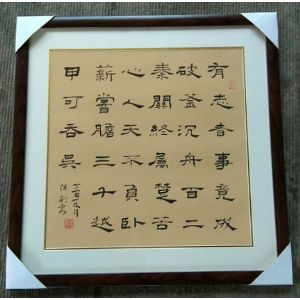 有志者事竟成
破釜沉舟百二
秦關終屬楚苦
心人天不負卧
薪嘗膽三千越
甲可吞吳
丁酉夏月